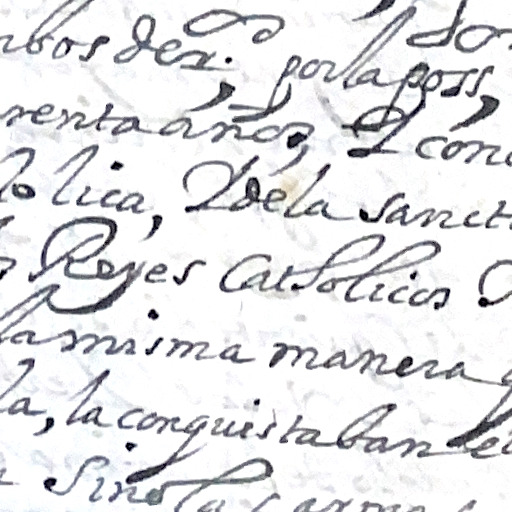 rbos dex. por la poss,
renta años, Y con
lolica, Y de la sanct
s Reyes Catholicos
la misma manera q
la, la conquistaban el
sino la